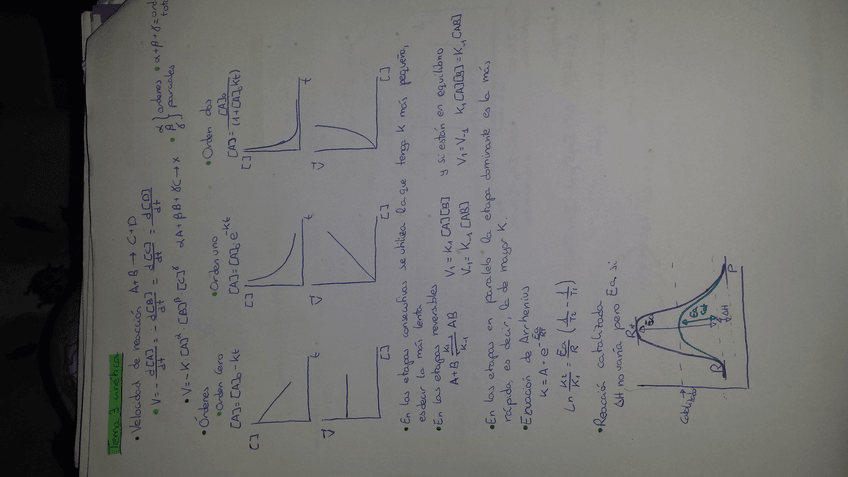 Tema 3: cinética
• Velocidad de reacción A+B → C+D
• V = - d[A]/dt = - d[B]/dt = d[C]/dt = d[D]/dt
• V = -K [A]^α [B]^β [C]^γ αA + βB + γC → X • α β γ } ordenes parciales • α+β+γ =
• Órdenes
• Orden cero • Orden uno • Orden dos
[A] = [A]₀ - Kt [A] = [A]₀ e^-Kt [A] = [A]₀ / (1+[A]₀Kt)
[ ] t [ ] t [ ] t
V [ ] V [ ] V [ ]
• En las etapas consecutivas se utiliza la que tenga K más pequeña,
es decir la más lenta
• En las etapas reversibles
A+B ⇌ AB K₁ K₋₁ V₁ = K₁ [A][B] y si están en equilibrio
V₋₁ = K₋₁ [AB] V₁ = V₋₁ K₁[A][B] = K₋₁[AB]
• En las etapas en paralelo la etapa dominante es la más
rápida, es decir, la de mayor K.
• Ecuación de Arrhenius
K = A · e^-Ea/RT
Ln K₂/K₁ = Ea/R (1/T₂ - 1/T₁)
• Reacción catalizada
ΔH no varía pero Ea si
R Ea Ea cat ΔH P